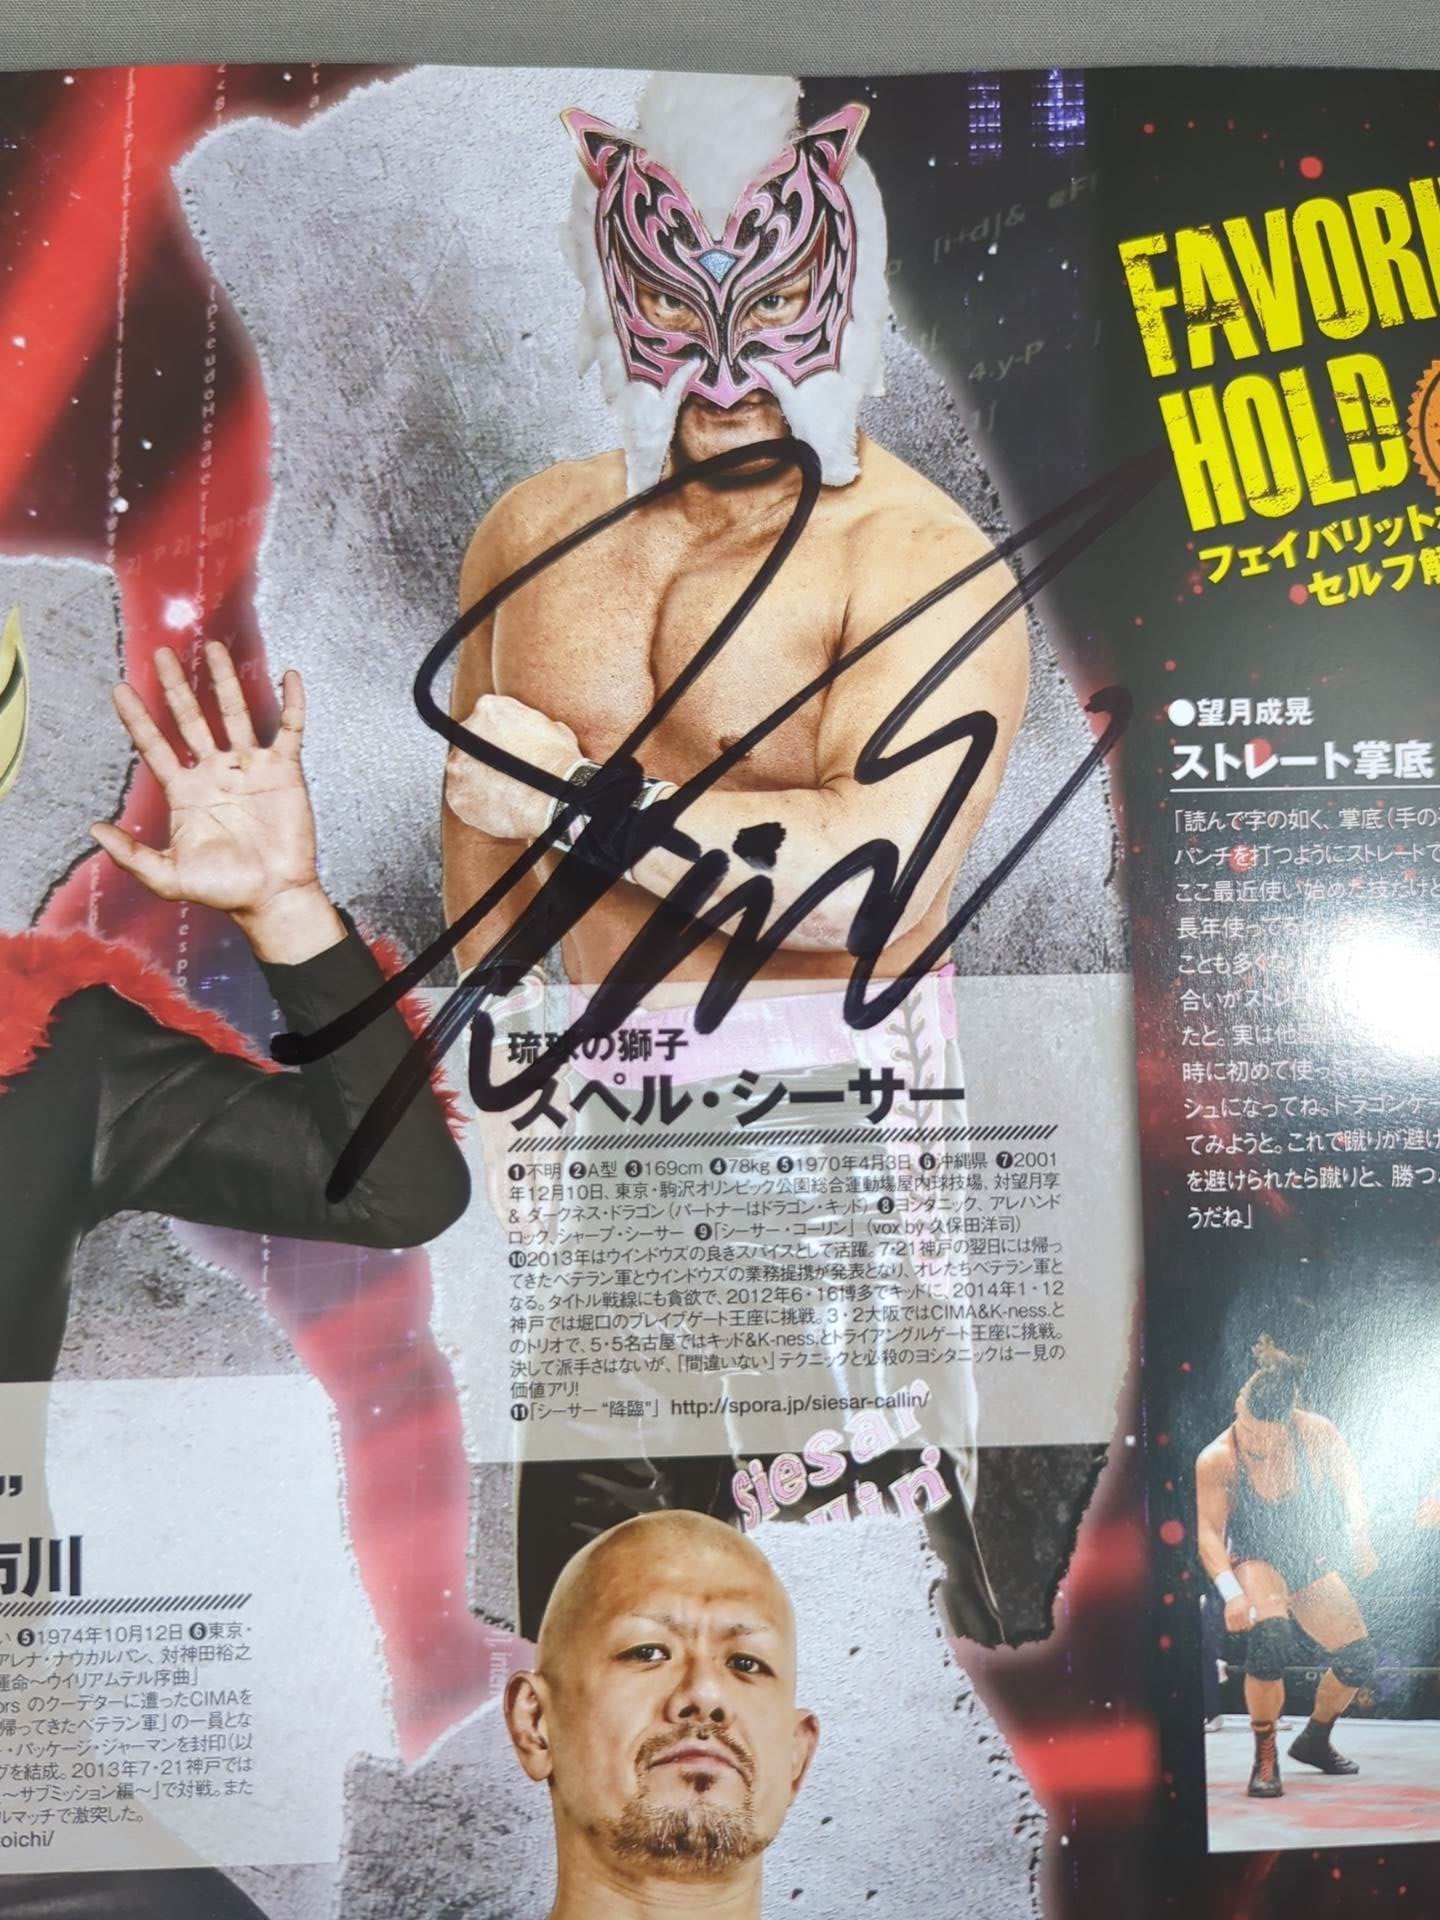 FAVORI
HOLD
フェイバリット
セルフ解
●望月成晃
ストレート掌底
「読んで字の如く、掌底(手の
パンチを打つようにストレートで
ここ最近使い始めた技だけど
長年使って
ことも多く
合いがストレー
たと。実は他
時に初めて使っ
シュになってね。ドラゴンゲー
てみようと。これで蹴りが避け
を避けられたら蹴りと、勝つ
うだね」
琉球の獅子
スペル・シーサー
❶不明 ❷A型 ❸169cm ❹78kg ❺1970年4月3日 ❻沖縄県 ❼2001
年12月10日、東京・駒沢オリンピック公園総合運動場屋内球技場、対望月享
& ダークネス・ドラゴン(パートナーはドラゴン・キッド) ❽ヨシタニック、アレハンド
ロック、シャープ・シーサー ❾「シーサー・コーリン」(vox by 久保田洋司)
❿2013年はウインドウズの良きスパイスとして活躍。7・21神戸の翌日には帰っ
てきたベテラン軍とウインドウズの業務提携が発表となり、オレたちベテラン軍と
なる。タイトル戦線にも貪欲で、2012年6・16博多でキッドに、2014年1・12
神戸では堀口のブレイブゲート王座に挑戦。3・2大阪ではCIMA&K-ness.と
のトリオで、5・5名古屋ではキッド&K-ness.とトライアングルゲート王座に挑戦。
決して派手さはないが、「間違いない」テクニックと必殺のヨシタニックは一見の
価値アリ!
⓫「シーサー“降臨”」 http://spora.jp/siesar-callin/
siesar
llin'
”
市川
い ❺1974年10月12日 ❻東京・
アレナ・ナウカルパン、対神田裕之
運命～ウイリアムテル序曲」
ors のクーデターに遭ったCIMAを
帰ってきたベテラン軍」の一員とな
・パッケージ・ジャーマンを封印(以
グを結成。2013年7・21神戸では
～サブミッション編～」で対戦。また
ルマッチで激突した。
oichi/